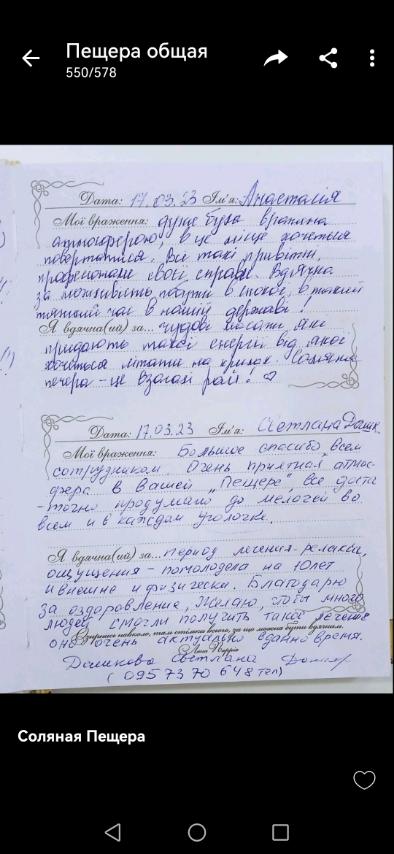 Пещера общая
550/578
Дата: 17.03.23 Ім'я: Анастасія
Мої враження: дуже була вражена
атмосферою, в це місце хочеться
повертатися. Всі такі привітні,
професіонали своєї справи. Вдячна
за можливість побути в спокої, в такий
тяжкий час в нашій державі!
Я вдячна(ий) за... чудові масажі, які
придають такої енергії від якої
хочеться літати на крилах. Соляна
печера - це взагалі рай!
Дата: 17.03.23 Ім'я: Светлана
Мої враження: Большое спасибо всем
сотрудникам. Очень приятная атмос-
фера в вашей "Пещере", все доста-
-точно продумано до мелочей во
всем и в каждом уголочке.
Я вдячна(ий) за... период лечения-релакса,
ощущения - помолодела на 10 лет
и внешне и физически. Благодарю
за оздоровление, желаю, чтобы много
людей смогли получить такое лечение
Озирнись навколо, там стільки всього, за що можна бути вдячним.
оно очень актуально в данно время.
Светлана
(095 73 70 648 тел)
Соляная Пещера